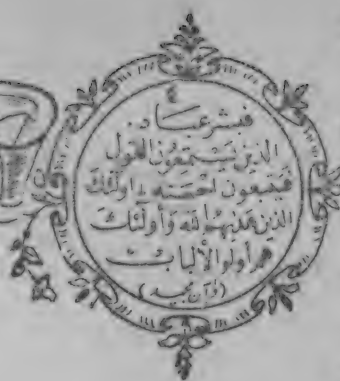 ٤
فبشر عبــاد..
الذين يستمعون القول
فيتبعون احسنه، اولئك
الذين هديهم الله واولئك
هم اولو الالباب
(قرآن مجيد)